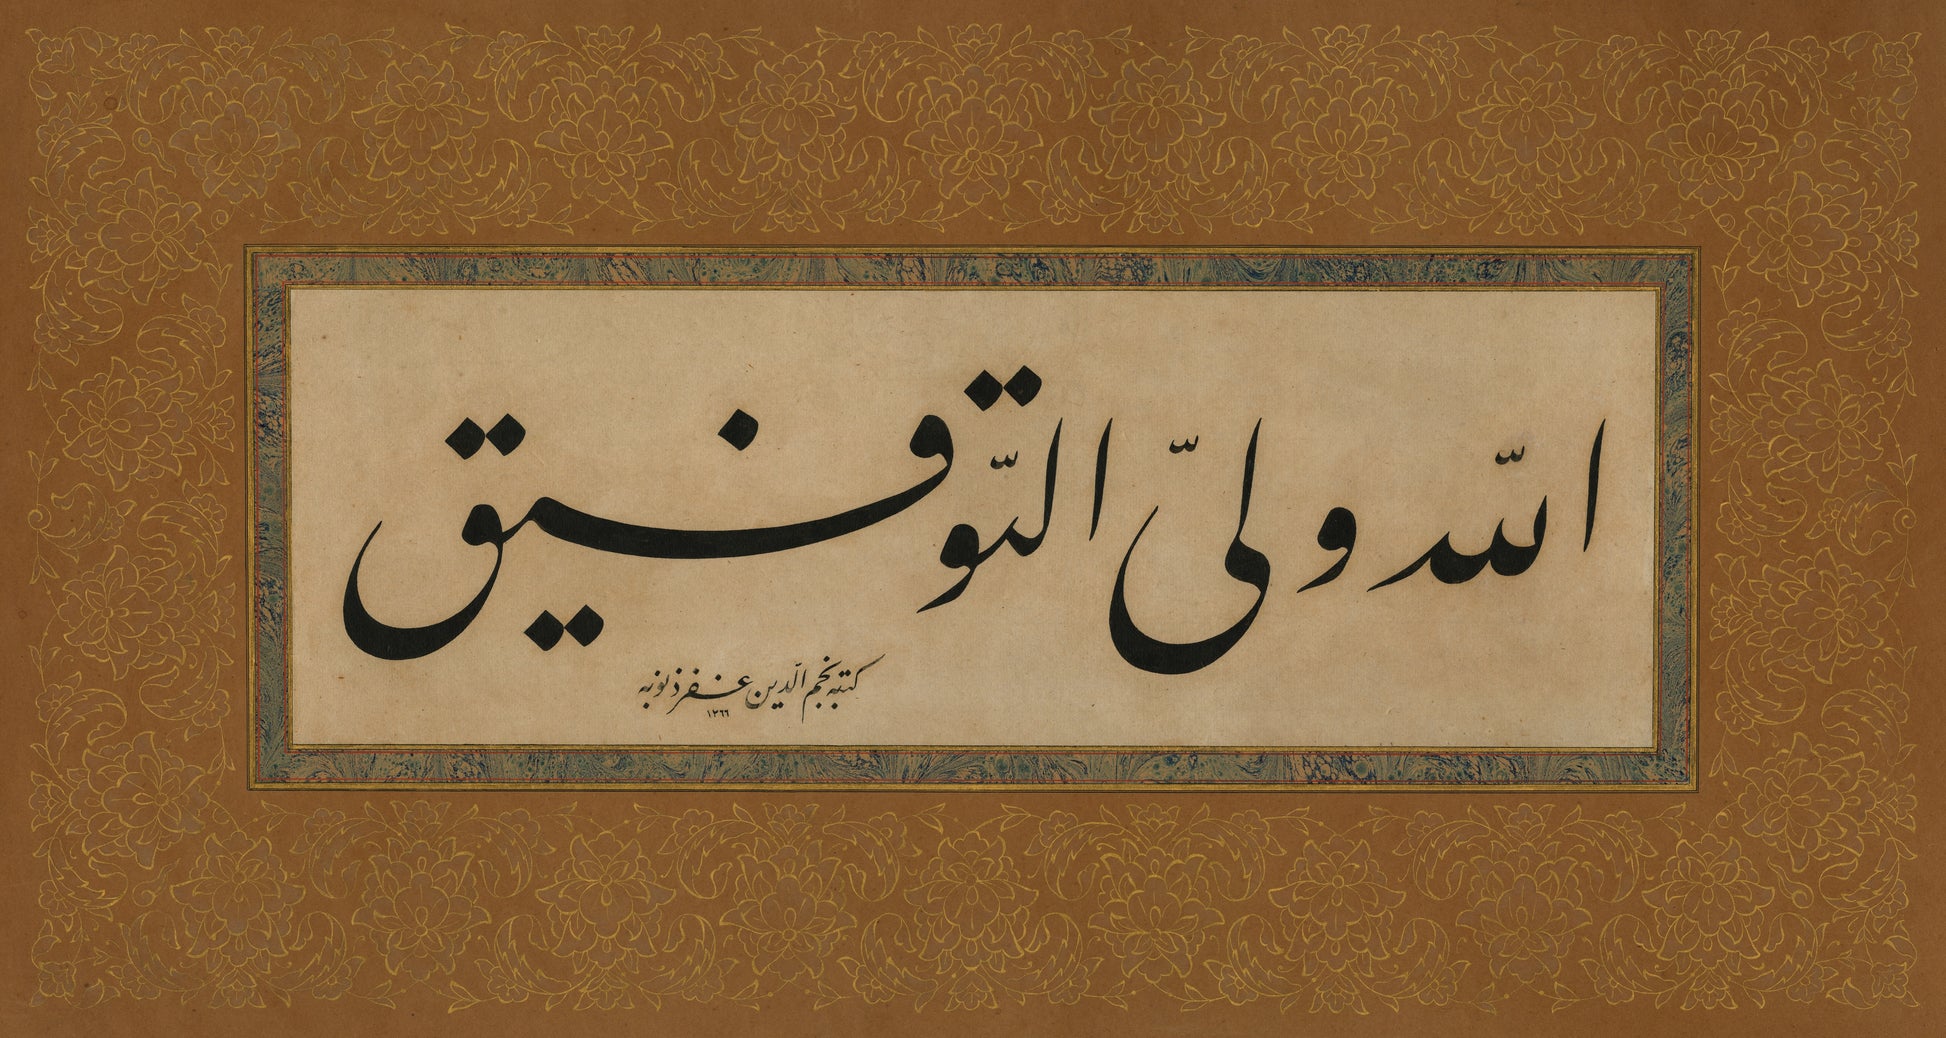 الله ولىّ التّوفيق
كتبه نجم الدين غفر ذنوبه
١٣٦٦